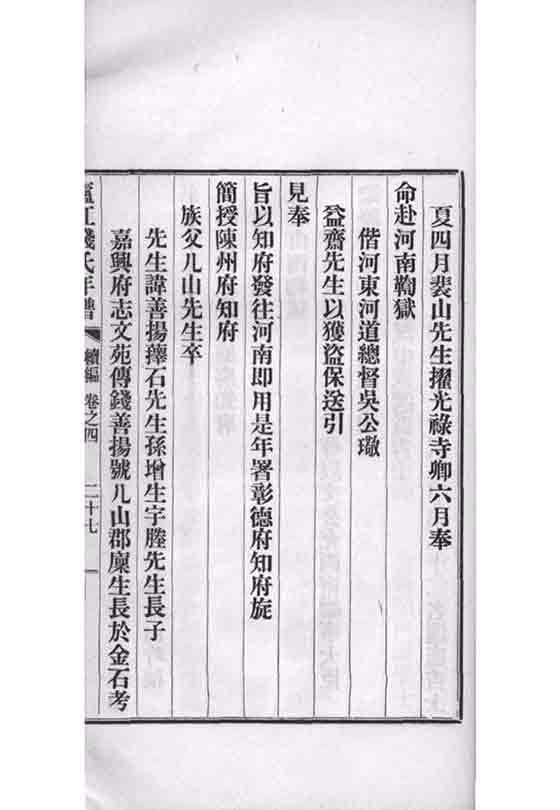 夏四月裴山先生擢光祿寺卿六月奉
命赴河南鞫獄
偕河東河道總督吳公璥
益齋先生以獲盜保送引
見奉
旨以知府發往河南即用是年署彰德府知府旋
簡授陳州府知府
族父几山先生卒
先生諱善揚蘀石先生孫增生宇塍先生長子
嘉興府志文苑傳錢善揚號几山郡廩生長於金石考
廬江錢氏年譜 續編 卷之四 二十七